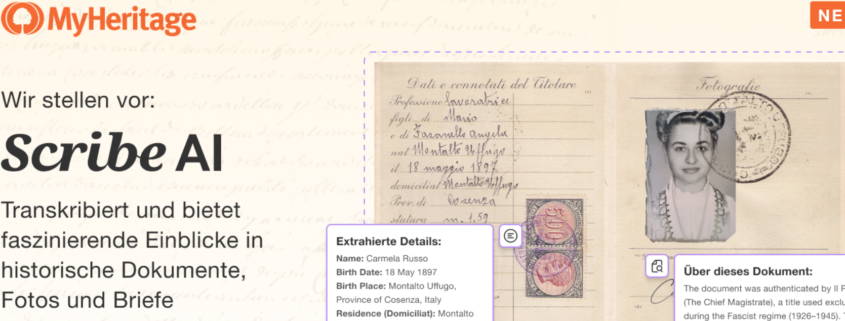 MyHeritage
NE
Wir stellen vor:
Scribe AI
Transkribiert und bietet
faszinierende Einblicke in
historische Dokumente,
Fotos und Briefe
Dati e connotati del Titolare
Professione Lavoratrice
figli di Mario
e di Fasanella Angela
nat Montalto Uffugo
il 18 maggio 1897
domiciliat Montalto Uffugo
Prov. di Cosenza
statura m. 1.59
Fotografie
500
Extrahierte Details:
Name: Carmela Russo
Birth Date: 18 May 1897
Birth Place: Montalto Uffugo,
Province of Cosenza, Italy
Residence (Domiciliat): Montalto
Über dieses Dokument:
The document was authenticated by Il P
(The Chief Magistrate), a title used exclu
during the Fascist regime (1926–1945). T